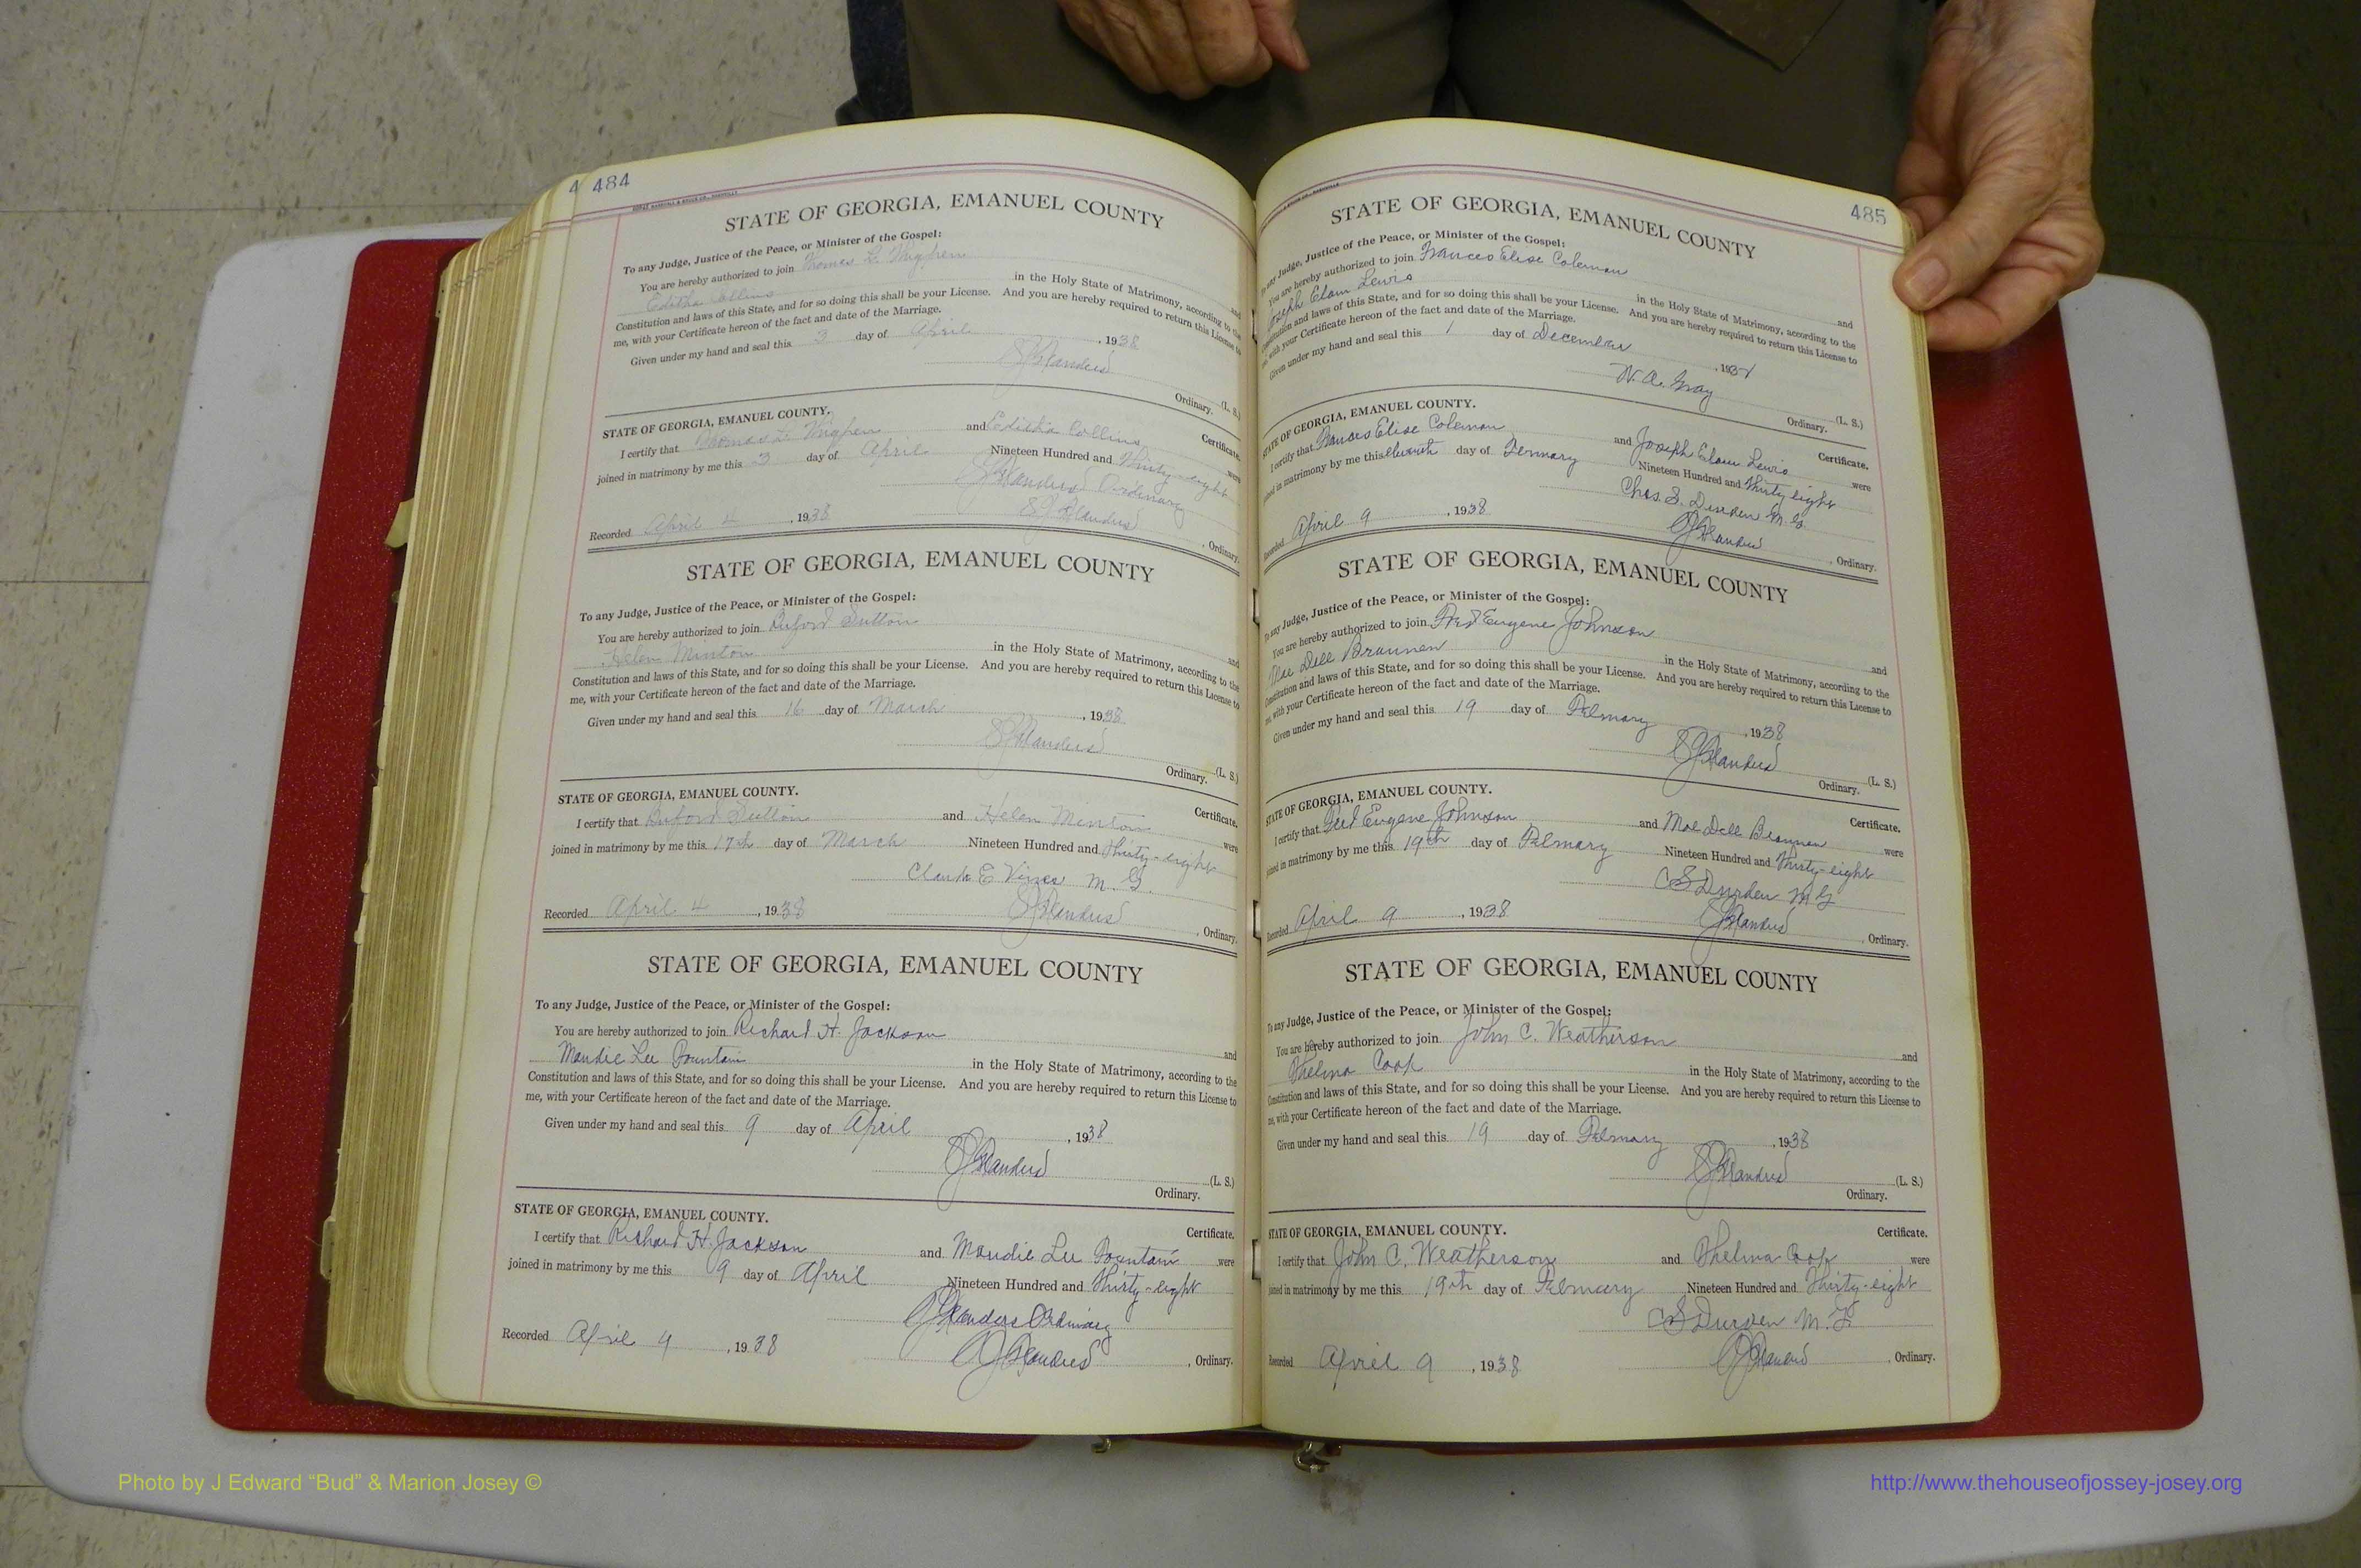 4 484
STATE OF GEORGIA, EMANUEL COUNTY
To any Judge, Justice of the Peace, or Minister of the Gospel:
You are hereby authorized to join Thomas L. and
Editha Collins in the Holy State of Matrimony, according to the
Constitution and laws of this State, and for so doing this shall be your License. And you are hereby required to return this License to
me, with your Certificate hereon of the fact and date of the Marriage.
Given under my hand and seal this 3 day of April, 1938
(L. S.)
Ordinary.
STATE OF GEORGIA, EMANUEL COUNTY. Certificate.
I certify that Thomas L. and Editha Collins were
joined in matrimony by me this 3 day of April Nineteen Hundred and Thirty-eight
Ordinary
Recorded April 4, 1938, Ordinary.
STATE OF GEORGIA, EMANUEL COUNTY
To any Judge, Justice of the Peace, or Minister of the Gospel:
You are hereby authorized to join Buford Sutton and
Helen Minton in the Holy State of Matrimony, according to the
Constitution and laws of this State, and for so doing this shall be your License. And you are hereby required to return this License to
me, with your Certificate hereon of the fact and date of the Marriage.
Given under my hand and seal this 16 day of March, 1938
(L. S.)
Ordinary.
STATE OF GEORGIA, EMANUEL COUNTY. Certificate.
I certify that Buford Sutton and Helen Minton were
joined in matrimony by me this 17th day of March Nineteen Hundred and Thirty-eight
Clark E Vines M. G.
Recorded April 4, 1938, Ordinary.
STATE OF GEORGIA, EMANUEL COUNTY
To any Judge, Justice of the Peace, or Minister of the Gospel:
You are hereby authorized to join Richard H. Jackson and
Maudie Lee Fountain in the Holy State of Matrimony, according to the
Constitution and laws of this State, and for so doing this shall be your License. And you are hereby required to return this License to
me, with your Certificate hereon of the fact and date of the Marriage.
Given under my hand and seal this 9 day of April, 1938
(L. S.)
Ordinary.
STATE OF GEORGIA, EMANUEL COUNTY. Certificate.
I certify that Richard H. Jackson and Maudie Lee Fountain were
joined in matrimony by me this 9 day of April Nineteen Hundred and Thirty-eight
Ordinary
Recorded April 9, 1938, Ordinary.
485
STATE OF GEORGIA, EMANUEL COUNTY
To any Judge, Justice of the Peace, or Minister of the Gospel:
You are hereby authorized to join Frances Elise Coleman and
Joseph Elam Lewis in the Holy State of Matrimony, according to the
Constitution and laws of this State, and for so doing this shall be your License. And you are hereby required to return this License to
me, with your Certificate hereon of the fact and date of the Marriage.
Given under my hand and seal this 1 day of December, 1937
N. A. Gray (L. S.)
Ordinary.
STATE OF GEORGIA, EMANUEL COUNTY. Certificate.
I certify that Frances Elise Coleman and Joseph Elam Lewis were
joined in matrimony by me this day of Nineteen Hundred and Thirty eight
Chas. S. Durden M. G.
Recorded April 9, 1938, Ordinary.
STATE OF GEORGIA, EMANUEL COUNTY
To any Judge, Justice of the Peace, or Minister of the Gospel:
You are hereby authorized to join Fred Eugene Johnson and
Mae Dell Brannen in the Holy State of Matrimony, according to the
Constitution and laws of this State, and for so doing this shall be your License. And you are hereby required to return this License to
me, with your Certificate hereon of the fact and date of the Marriage.
Given under my hand and seal this 19 day of February, 1938
(L. S.)
Ordinary.
STATE OF GEORGIA, EMANUEL COUNTY. Certificate.
I certify that Fred Eugene Johnson and Mae Dell Brannen were
joined in matrimony by me this 19th day of February Nineteen Hundred and Thirty-eight
C S Durden M G
Recorded April 9, 1938, Ordinary.
STATE OF GEORGIA, EMANUEL COUNTY
To any Judge, Justice of the Peace, or Minister of the Gospel:
You are hereby authorized to join John C. Weatherson and
Thelma Cook in the Holy State of Matrimony, according to the
Constitution and laws of this State, and for so doing this shall be your License. And you are hereby required to return this License to
me, with your Certificate hereon of the fact and date of the Marriage.
Given under my hand and seal this 19 day of February, 1938
(L. S.)
Ordinary.
STATE OF GEORGIA, EMANUEL COUNTY. Certificate.
I certify that John C. Weatherson and Thelma Cook were
joined in matrimony by me this 19th day of February Nineteen Hundred and Thirty-eight
C S Durden M. G.
Recorded April 9, 1938, Ordinary.
Photo by J Edward “Bud” & Marion Josey ©
http://www.thehouseofjossey-josey.org